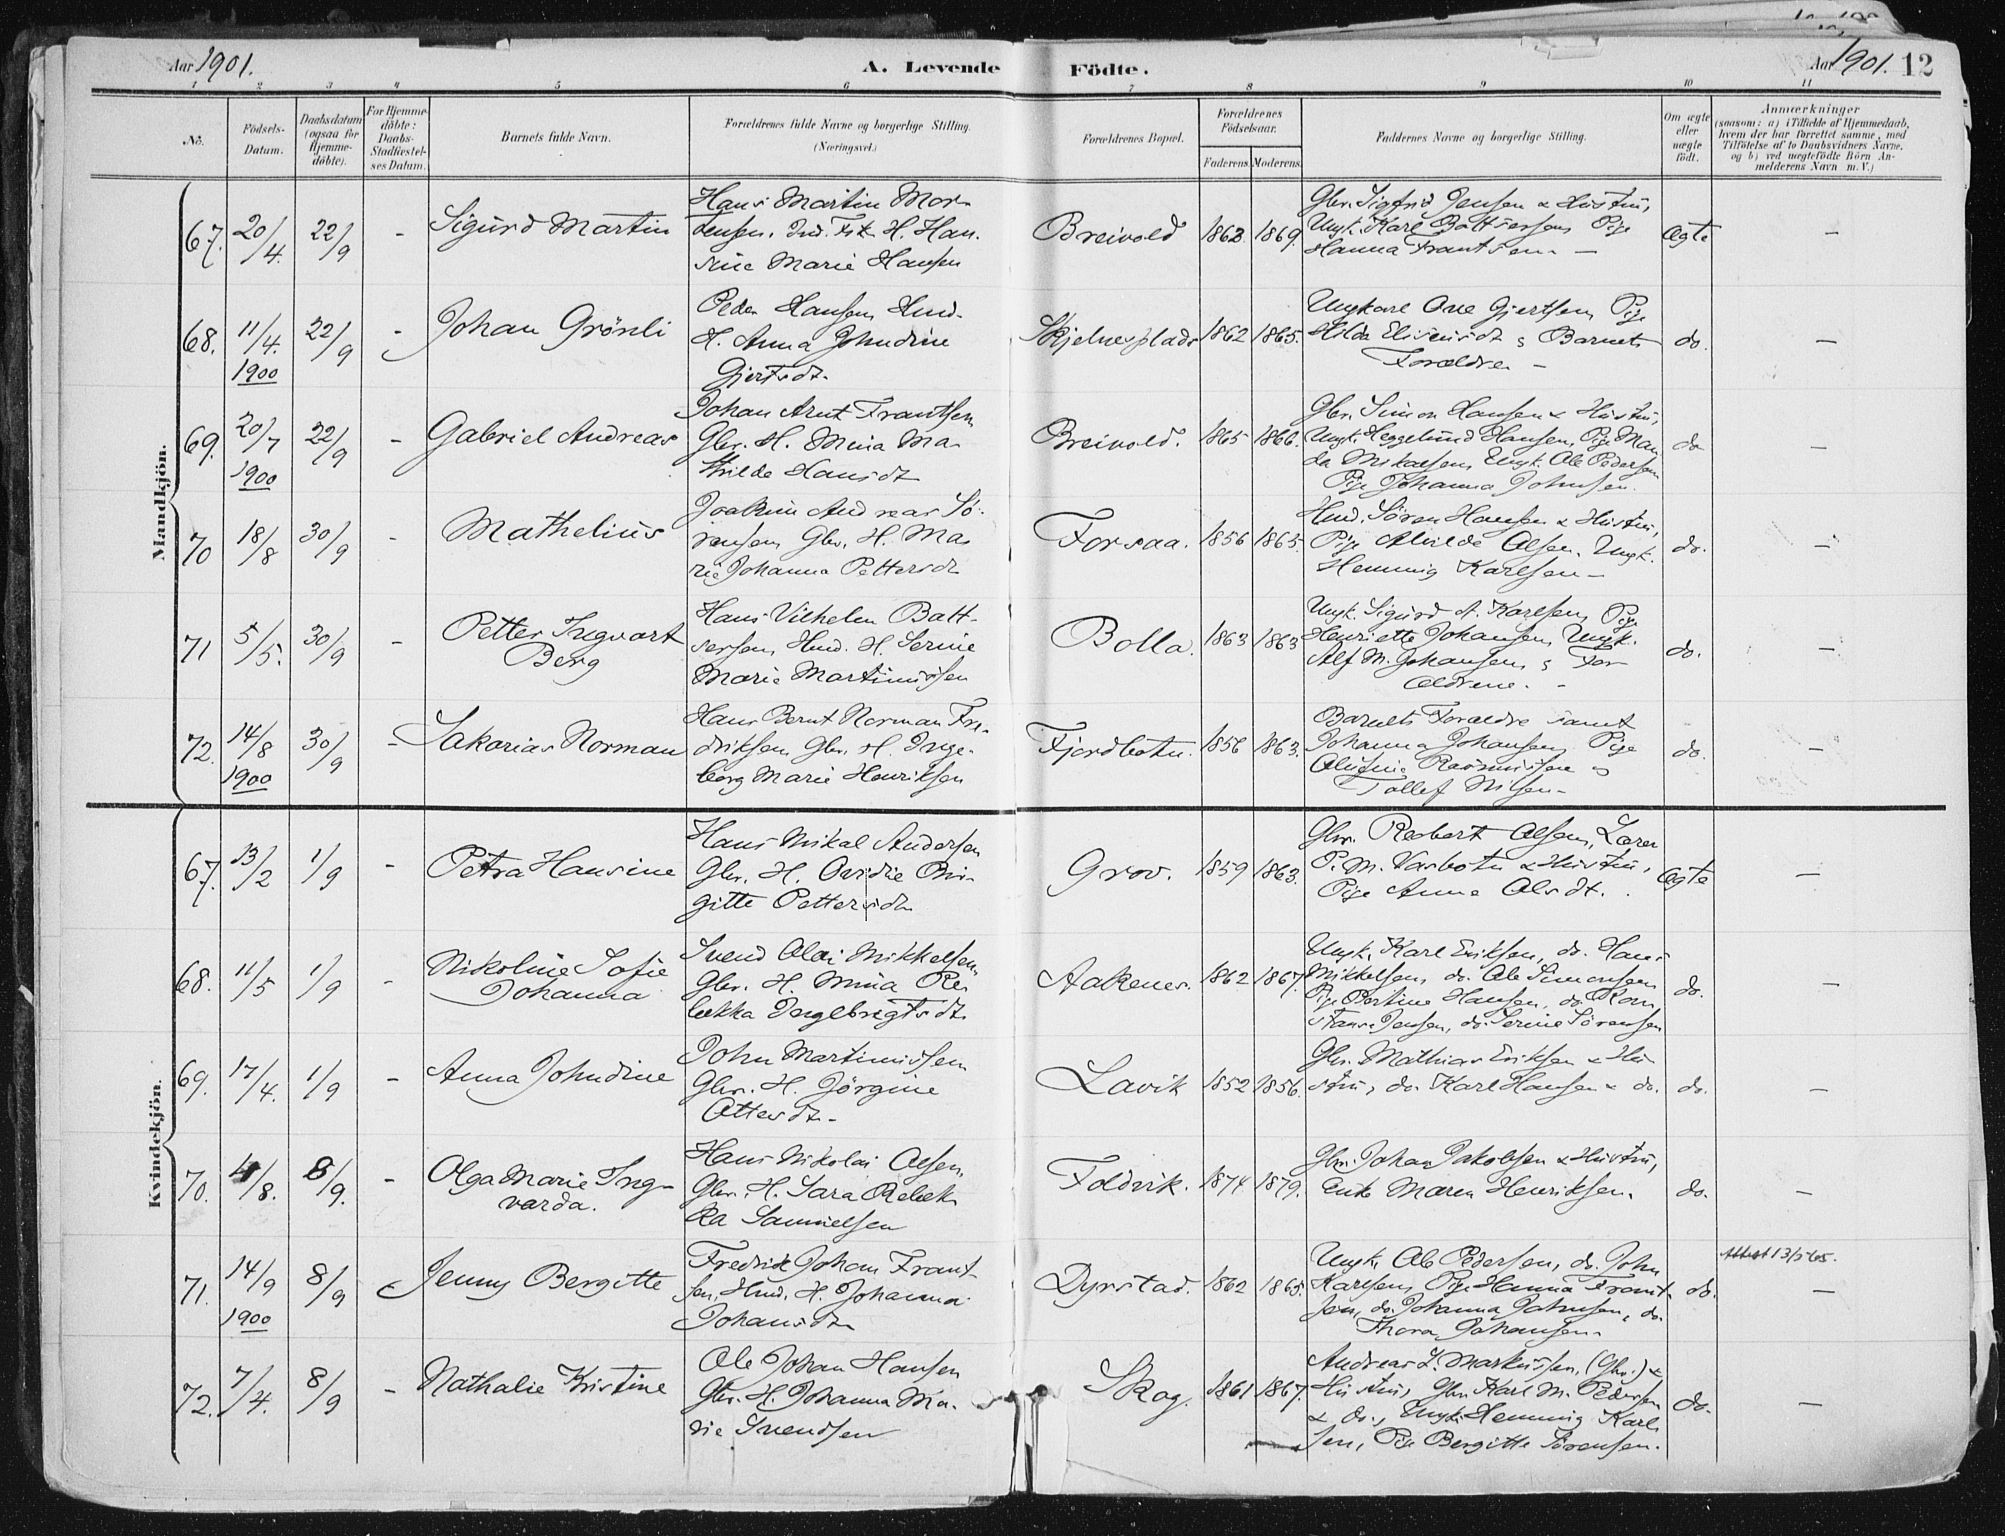 Aar 1901.
A. Levende Födte.
Aar 1901. 12
1 2 3 4 5 6 7 8 9 10 11
No.
Födsels-Datum.
Daabsdatum (ogsaa for Hjemme-döbte).
For Hjemme-döbte: Daabs-Stadfæstel-ses Datum.
Barnets fulde Navn.
Forældrenes fulde Navne og borgerlige Stilling.
(Næringsvei.)
Forældrenes Bopæl.
Forældrenes Födselsaar.
Faderens. Moderens.
Faddernes Navne og borgerlige Stilling.
Om ægte eller uægte födt.
Anmærkninger
(saasom: a) i Tilfælde af Hjemmedaab,
hvem der har forrettet samme, med
Tilföielse af to Daabsvidners Navne.
og b) ved uægtefödte Börn An-
melderens Navn m. V.)
Mandkjön.
67. 20/4. 22/9 -
Sigurd Martin
Hans Martin Mor-
tensen, Ind. Fisk. H. Han-
sine Marie Hansen
Breivold 1862. 1869.
Gbr. Sigfrid Jensen & Hustru,
Ungk. Karl Baltsersen, Pige
Hanna Frantsen. -
Ægte -
68. 11/4. 1900 22/9 -
Johan Grönli
Peder Hansen Hmd.
H. Anna Johndine
Gjertsdt.
Skjelnesplads 1862 1865.
Ungkarl Ove Gjertsen, Pige
Hilda Eliseusdt & Barnets
Forældre -
do. -
69. 20/7 1900 22/9 -
Gabriel Andreas
Johan Arnt Frantsen
Gbr. H. Mina Ma-
thilde Hansdt
Breivold. 1865 1866.
Gbr. Simon Hansen & Hustru,
Ungk. Heggelund Hansen, Pige Man
da Mikalsen, Ungk. Ole Pedersen
Pige Johanna Johnsen.
do -
70 18/8 30/9 -
Mathelius
Joakim Andreas Sö-
rensen Gbr. H. Ma-
rie Johanna Pettersdt
Forsaa. 1856 1863.
Hmd. Sören Hansen & Hustru,
Pige Alvilde Olsen, Ungk.
Hemmig Karlsen -
do. -
71 5/5. 30/9 -
Petter Ingvart
Berg
Hans Vilhelm Balt-
sersen Hmd. H. Serine
Marie Martinussen
Bolla. 1863 1863
Ungk. Sigurd A. Karlsen, Pige
Henriette Johansen, Ungk.
Alf M. Johansen & For
ældrene. -
do. -
72. 14/8 1900 30/9 -
Sakarias Norman
Hans Bernt Norman Fre-
driksen Gbr. H. Inge-
borg Marie Henriksen
Fjordbotn. 1856 1863.
Barnets Forældre samt
Johanna Johansen, Pige
Olufine Rasmussen &
Tollef Nilsen -
do. -
Kvindekjön.
67. 13/2 1/9 -
Petra Hansine
Hans Mikal Andersen
Gbr. H. Ovidie Bir-
gitte Pettersdt
Grov. 1859 1863.
Gbr. Reobert Olsen, Lærer
P. M. Vasbotn & Hustru,
Pige Anne Olsdt.
Ægte -
68. 11/5 1/9 -
Nikoline Sofie
Johanna
Svend Olai Mikkelsen
Gbr. H. Mina Re-
bekka Ingebrigtsdt.
Aakenes. 1862 1867.
Ungk. Karl Eriksen, do. Hans
Mikkelsen, do. Ole Simonsen
Pige Bertine Hansen, do. Kon
stanse Jensen, do. Serine Sörensen
do. -
69. 17/4. 1/9 -
Anna Johndine
John Martinussen
Gbr. H. Jörgine
Ottersdt. -
Lavik 1852 1856.
Gbr. Mathias Eriksen & Hu
stru, do. Karl Hansen & do.
do. -
70. 4/8. 8/9. -
Olga Marie Ing-
varda.
Hans Nikolai Olsen
Gbr. H. Sara Rebek-
ka Samuelsen
Foldvik. 1874 1879.
Gbr. Johan Jakobsen & Hustru,
Enke Maren Henriksen.
do. -
71. 14/9 1900 8/9 -
Jenny Bergitte
Fredrik Johan Frant-
sen, Hmd. H. Johanna
Johansdt.
Dyrstad. 1862 1865.
Ungk. Ole Pedersen, do. John
Karlsen, Pige Hanna Frant-
sen, do. Johanna Johnsen, do.
Thora Johansen.
do. Attest 13/5 65. -
72. 7/4. 8/9 -
Nathalie Kristine
Ole Johan Hansen
Gbr. H. Johanna Ma-
rie Svendsen
Skog. 1861 1867.
Andreas L. Markussen, (Gbr.) &
Hustru, Gbr. Karl M. Pedersen
& do., Ungk. Hemmig Karl
sen, Pige Bergitte Sörensen.
do. -